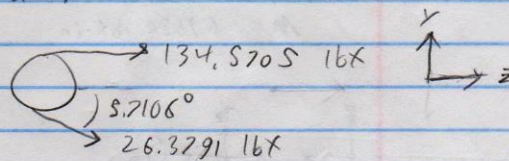 134.5705 lbf
Y
z
5.7106°
26.3291 lbf